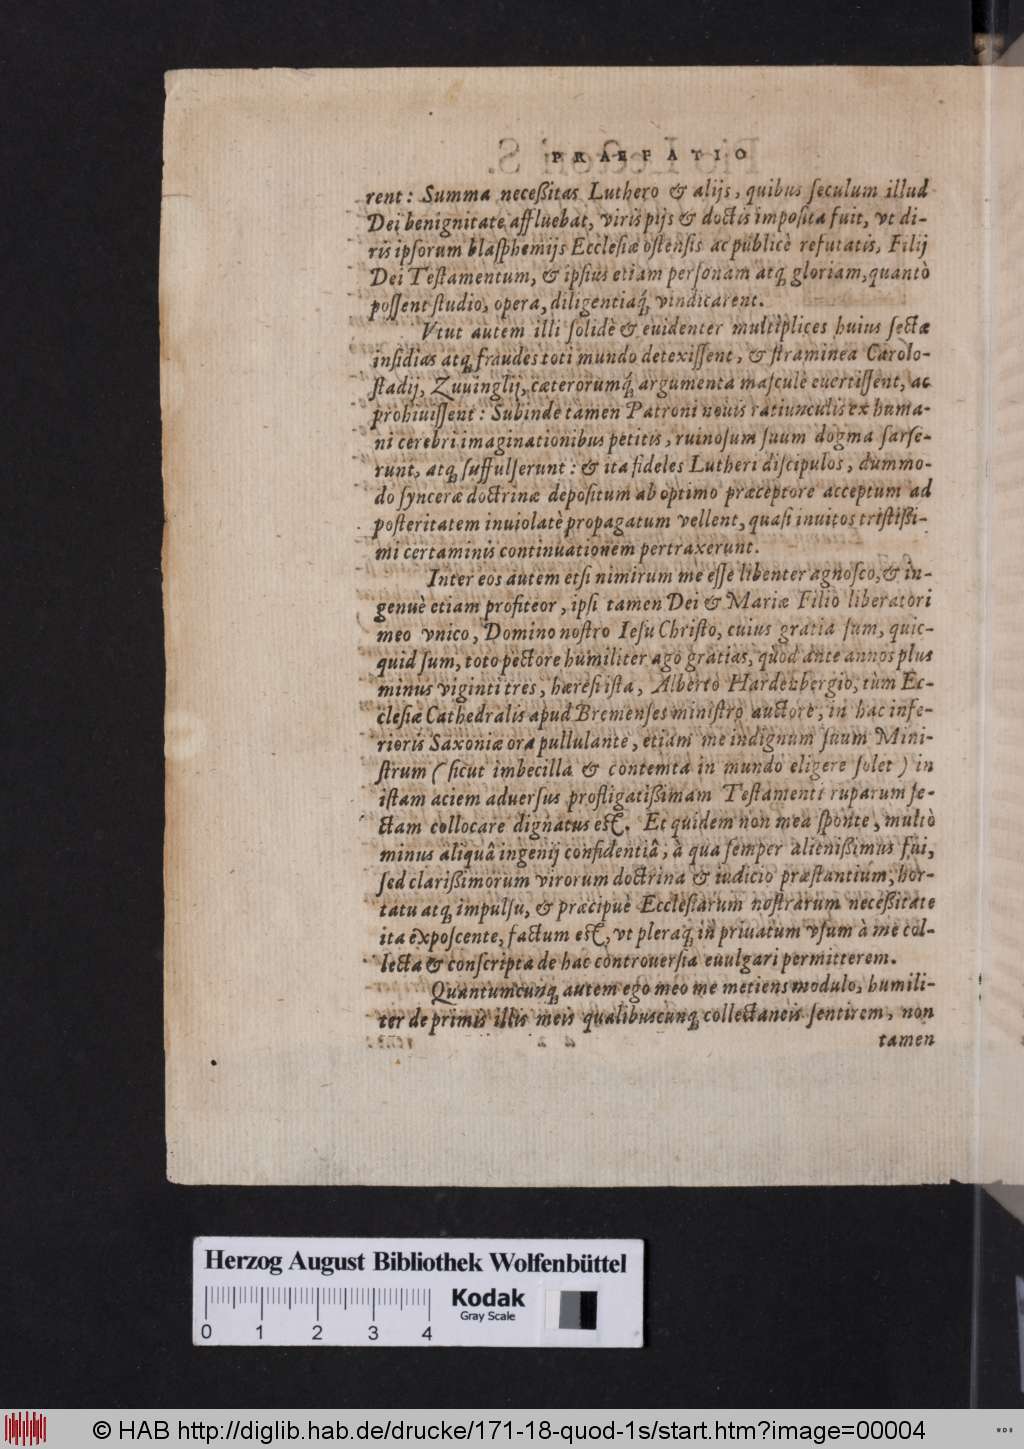 PRAEFATIO
rent: Summa neceßitas Luthero & alijs, quibus ſeculum illud
Dei benignitate affluebat, viris pijs & doctis impoſita fuit, vt di-
ris ipſorum blaſphemijs Eccleſiæ oſtenſis ac publicè refutatis, Filij
Dei Teſtamentum, & ipſius etiam perſonam atq́; gloriam, quantò
poſſent ſtudio, opera, diligentiaq́;, vindicarent.
Vtut autem illi ſolidè & euidenter multiplices huius ſectæ
inſidias atq; fraudes toti mundo detexiſſent, & ſtraminea Carolo-
ſtadij, Zuuinglij, cæterorumq́; argumenta maſculè euertiſſent, ac
prohiuiſſent: Subinde tamen Patroni nouis ratiunculis ex huma-
ni cerebri imaginationibus petitis, ruinoſum ſuum dogma ſarſe-
runt, atq; ſuffulſerunt: & ita fideles Lutheri diſcipulos, dummo-
do ſynceræ doctrinæ depoſitum ab optimo præceptore acceptum ad
poſteritatem inuiolatè propagatum vellent, quaſi inuitos triſtißi-
mi certaminis continuationem pertraxerunt.
Inter eos autem etſi nimirum me eſſe libenter agnoſco, & in-
genuè etiam profiteor, ipſi tamen Dei & Mariæ Filio liberatori
meo vnico, Domino noſtro Ieſu Chriſto, cuius gratia ſum, quic-
quid ſum, toto pectore humiliter ago gratias, quòd ante annos plus
minus viginti tres, hæreſi iſta, Alberto Hardenbergio, tùm Ec-
cleſiæ Cathedralis apud Bremenſes miniſtro auctore, in hac infe-
rioris Saxoniæ ora pullulante, etiam me indignum ſuum Mini-
ſtrum (ſicut imbecilla & contemta in mundo eligere ſolet) in
iſtam aciem aduerſus profligatißimam Teſtamenti ruparum ſe-
ctam collocare dignatus eſt. Et quidem non mea ſponte, multò
minus aliquâ ingenij confidentiâ, à qua ſemper alienißimus fui,
ſed clarißimorum virorum doctrina & iudicio præſtantium, hor-
tatu atq; impulſu, & præcipuè Eccleſiarum noſtrarum neceßitate
ita expoſcente, factum eſt, vt pleraq; in priuatum vſum à me col-
lecta & conſcripta de hac controuerſia euulgari permitterem.
Quantumcunq; autem ego meo me metiens modulo, humili-
ter de primis illis meis qualibuscunq; collectaneis ſentirem, non
tamen
Herzog August Bibliothek Wolfenbüttel
Kodak
Gray Scale
0 1 2 3 4
© HAB http://diglib.hab.de/drucke/171-18-quod-1s/start.htm?image=00004